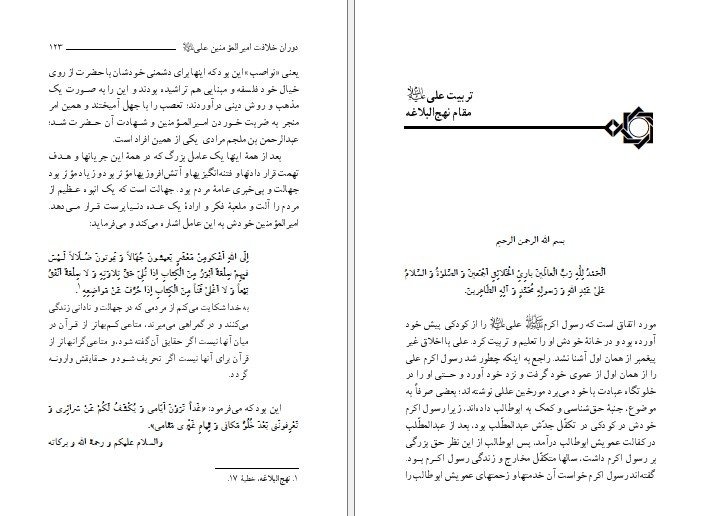 دوران خلافت امیرالمؤمنین علی ۱۲۳
یعنی «نواصب» این بود که اینها برای دشمنی خودشان با حضرت از روی
خیال خود فلسفه و مبنایی هم تراشیده بودند و این را به صورت یک
مذهب و روش دینی درآوردند؛ تعصب را با جهل آمیختند و همین امر
منجر به ضربت خوردن امیرالمؤمنین و شهادت آن حضرت شد؛
عبدالرحمن بن ملجم مرادی یکی از همین افراد است.
بعد از همهٔ اینها یک عامل بزرگ که در همهٔ این جریانها و هدف
تهمت قرار دادنها و فتنه‌انگیزیها و آتش‌افروزیها مؤثر بود و زیاد مؤثر بود
جهالت و بی‌خبری عامهٔ مردم بود. جهالت است که یک انبوه عظیم از
مردم را آلت و ملعبهٔ فکر و ارادهٔ یک عده دنیاپرست قرار می‌دهد.
امیرالمؤمنین خودش به این عامل اشاره می‌کند و می‌فرماید:
اِلَی اللهِ اَشْکو مِنْ مَعْشَرٍ یَعیشونَ جُهّالاً وَ یَموتونَ ضُلّالاً لَیْسَ
فیهِمْ سِلْعَةٌ اَبْوَرُ مِنَ الْکِتابِ اِذا تُلِیَ حَقَّ تِلاوَتِهِ وَ لا سِلْعَةٌ اَنْفَقُ
بَیْعاً وَ لا اَغْلیٰ ثَمَناً مِنَ الْکِتابِ اِذا حُرِّفَ عَنْ مَواضِعِهِ.۱
به خدا شکایت می‌کنم از مردمی که در جهالت و نادانی زندگی
می‌کنند و در گمراهی می‌میرند. متاعی کم‌بهاتر از قرآن در
میان آنها نیست اگر حقایق آن گفته شود، و متاعی گرانبهاتر از
قرآن برای آنها نیست اگر تحریف شود و حقایقش وارونه
گردد.
این بود که می‌فرمود: «غَداً تَرَوْنَ اَیّامی وَ یُکْشَفُ لَکُمْ عَنْ سَرائِری وَ
تَعْرِفونَنی بَعْدَ خُلُوِّ مَکانی وَ قِیامِ غَیْری مَقامی».
والسلام علیکم و رحمة الله و برکاته
۱. نهج‌البلاغه، خطبهٔ ۱۷.
تربیت علی علیه‌السلام
مقام نهج‌البلاغه
بسم الله الرحمن الرحیم
اَلْحَمْدُ لِلّهِ رَبِّ الْعالَمینَ بارِئِ الْخَلائِقِ اَجْمَعینَ وَ الصَّلوةُ وَ السَّلامُ
عَلیٰ عَبْدِ اللهِ وَ رَسولِهِ مُحَمَّدٍ وَ آلِهِ الطّاهِرینَ.
مورد اتفاق است که رسول اکرم ﷺ علی علیه‌السلام را از کودکی پیش خود
آورده بود و در خانهٔ خودش او را تعلیم و تربیت کرد. علی با اخلاق غیر
پیغمبر از همان اول آشنا نشد. راجع به اینکه چطور شد رسول اکرم علی
را از همان اول از عموی خود گرفت و نزد خود آورد و حتی او را در
خلوتگاه عبادت با خود می‌برد مورخین عللی نوشته‌اند؛ بعضی صرفاً به
موضوع، جنبهٔ حق‌شناسی و کمک به ابوطالب داده‌اند، زیرا رسول اکرم
خودش در کودکی در تکفّل جدّش عبدالمطّلب بود. بعد از عبدالمطّلب
در کفالت عمویش ابوطالب درآمد. پس ابوطالب از این نظر حق بزرگی
بر رسول اکرم داشت، سالها متکفّل مخارج و زندگی رسول اکرم بود.
گفته‌اند رسول اکرم خواست آن خدمتها و زحمتهای عمویش ابوطالب را